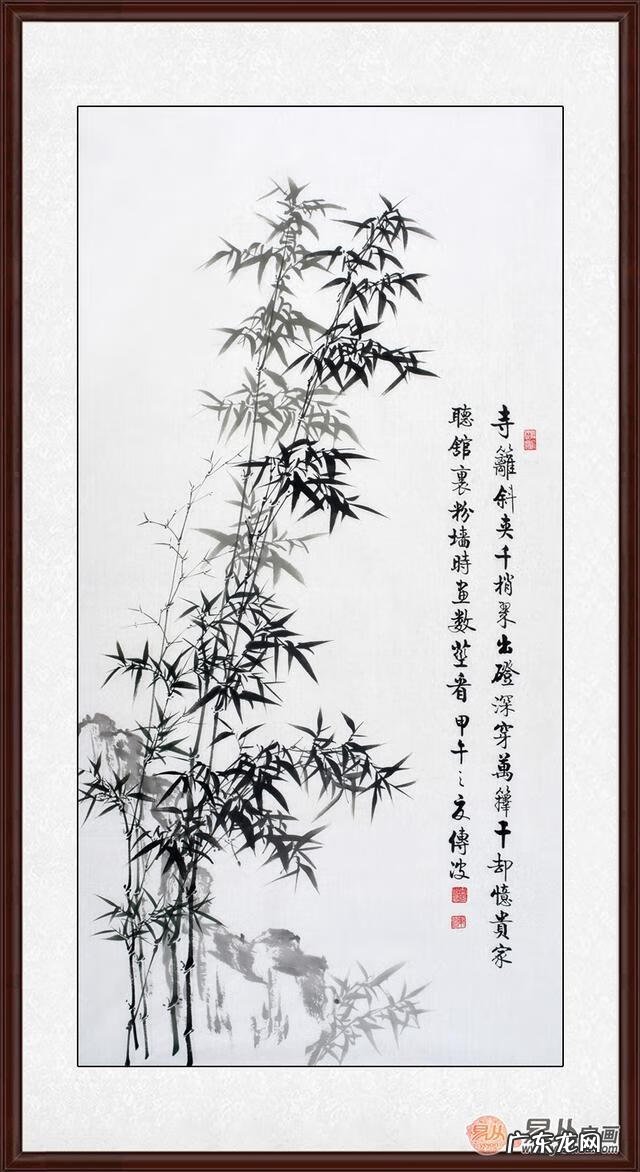 寺籬斜夾千梢翠出磴深穿萬籜干却憶貴家
聽館裏粉墻時畫數莖看甲午之夏傳波
易从
广东龙网